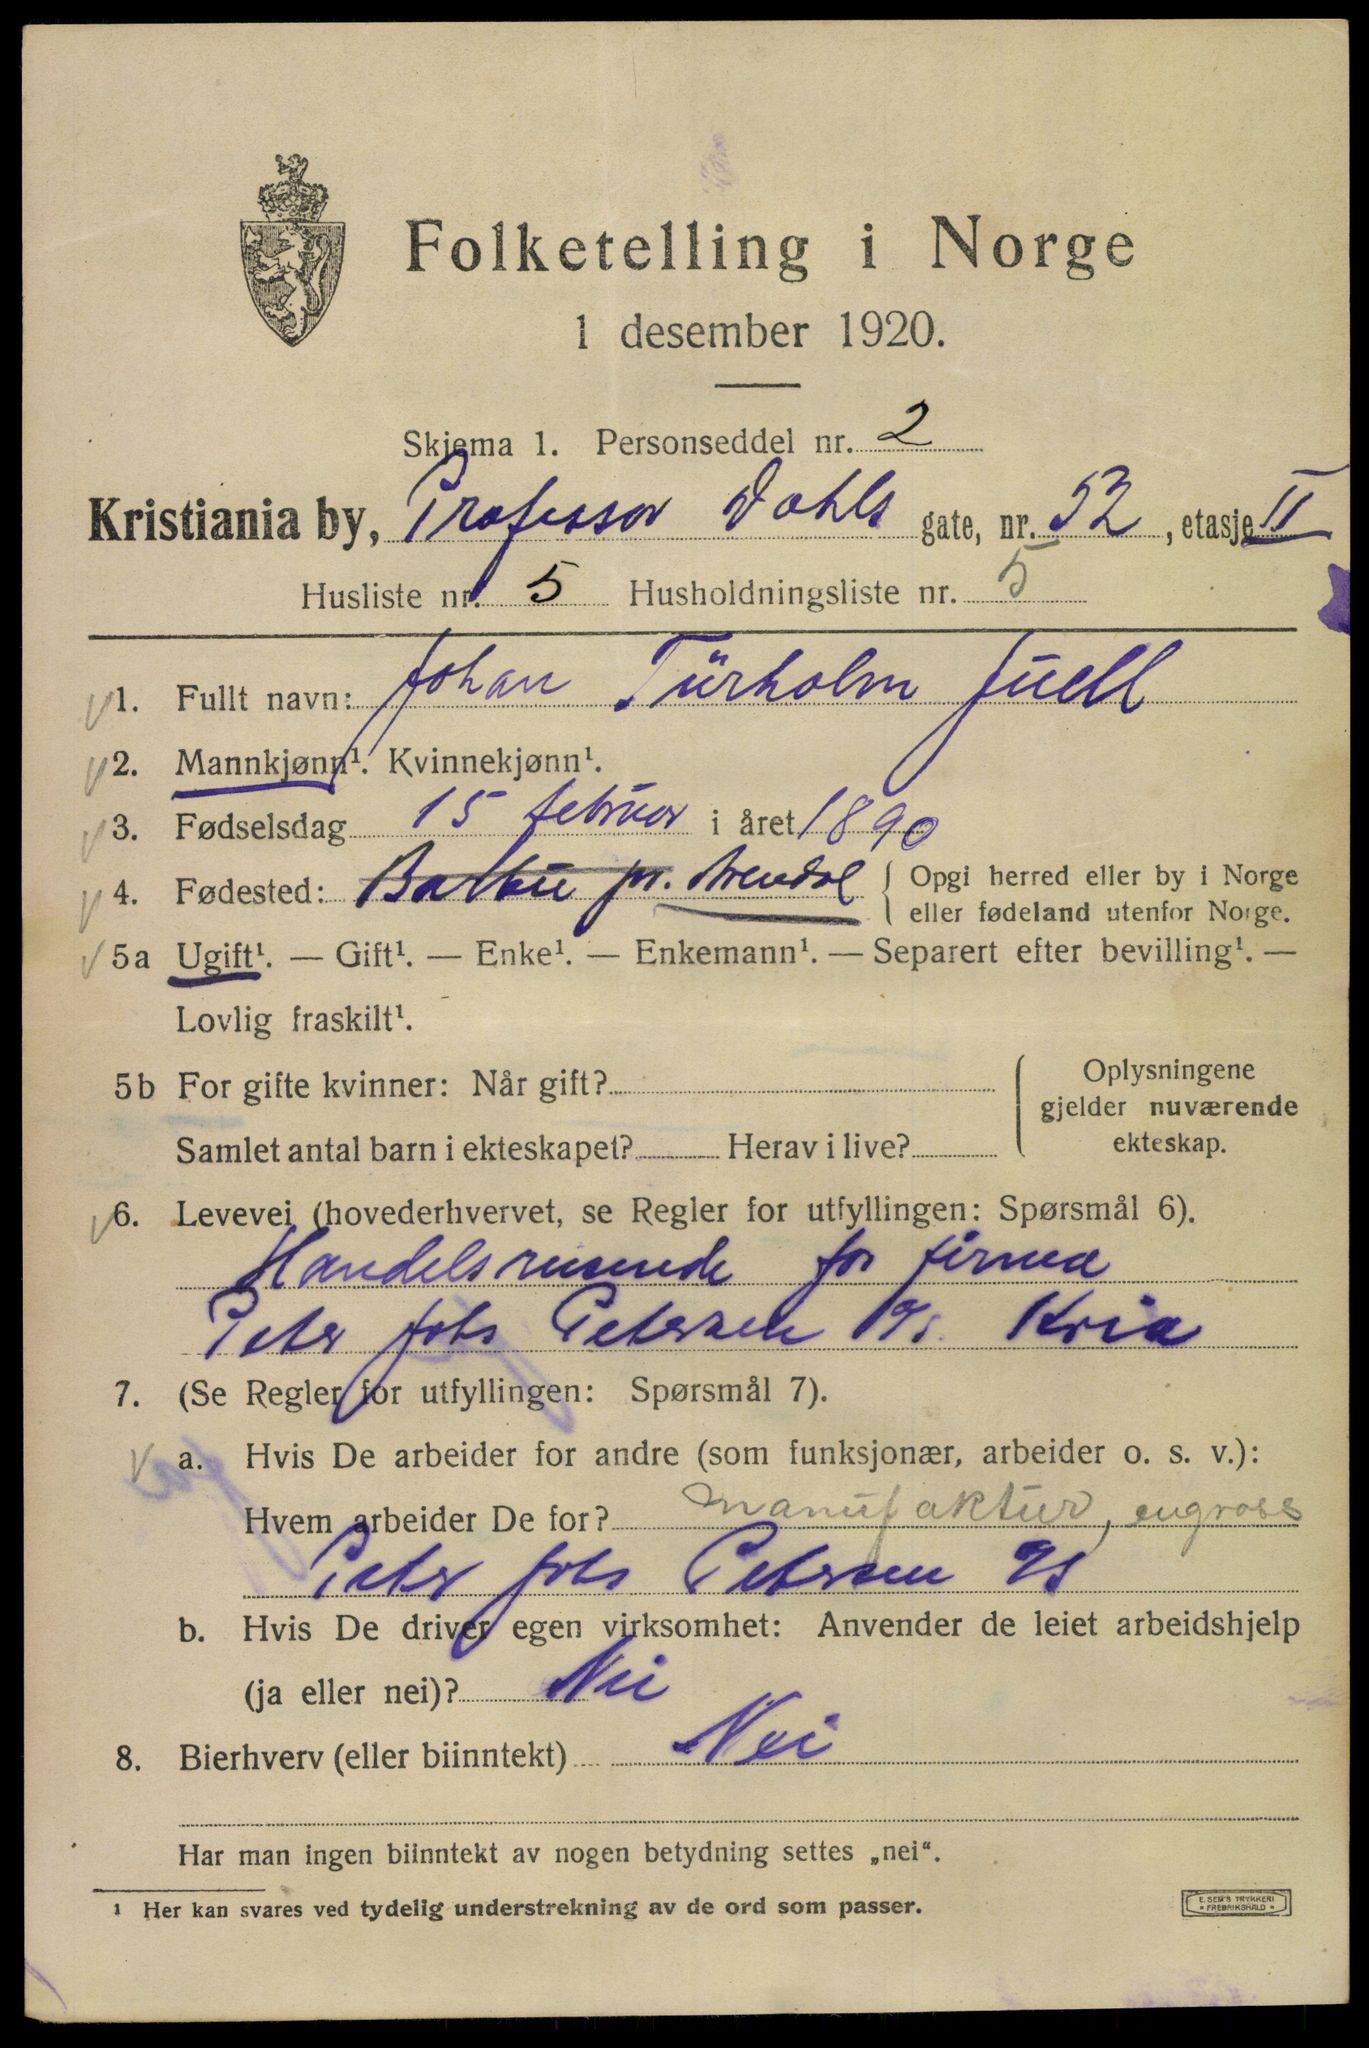 Folketelling i Norge
1 desember 1920.
Skjema 1. Personseddel nr. 2
Kristiania by, Professor Dahls gate, nr. 52, etasje II
Husliste nr. 5 Husholdningsliste nr. 5
1. Fullt navn: Johan Türholm Juell
2. Mannkjønn¹. Kvinnekjønn¹.
3. Fødselsdag 15 februar i året 1890
4. Fødested: Barbu pr. Arendal { Opgi herred eller by i Norge
eller fødeland utenfor Norge.
5a Ugift¹. — Gift¹. — Enke¹. — Enkemann¹. — Separert efter bevilling¹. —
Lovlig fraskilt¹.
5b For gifte kvinner: Når gift?
Samlet antal barn i ekteskapet? Herav i live?
Oplysningene
gjelder nuværende
ekteskap.
6. Levevei (hovederhvervet, se Regler for utfyllingen: Spørsmål 6).
Handelsreisende for firma
Peter Johs Petersen A/S. Kria
7. (Se Regler for utfyllingen: Spørsmål 7).
a. Hvis De arbeider for andre (som funksjonær, arbeider o. s. v.):
Hvem arbeider De for? Manufaktur, engross
Peter Johs Petersen A/S
b. Hvis De driver egen virksomhet: Anvender de leiet arbeidshjelp
(ja eller nei)? Nei
8. Bierhverv (eller biinntekt) Nei
Har man ingen biinntekt av nogen betydning settes „nei“.
¹ Her kan svares ved tydelig understrekning av de ord som passer.
E. SEM'S TRYKKERI
* FREDRIKSHALD *